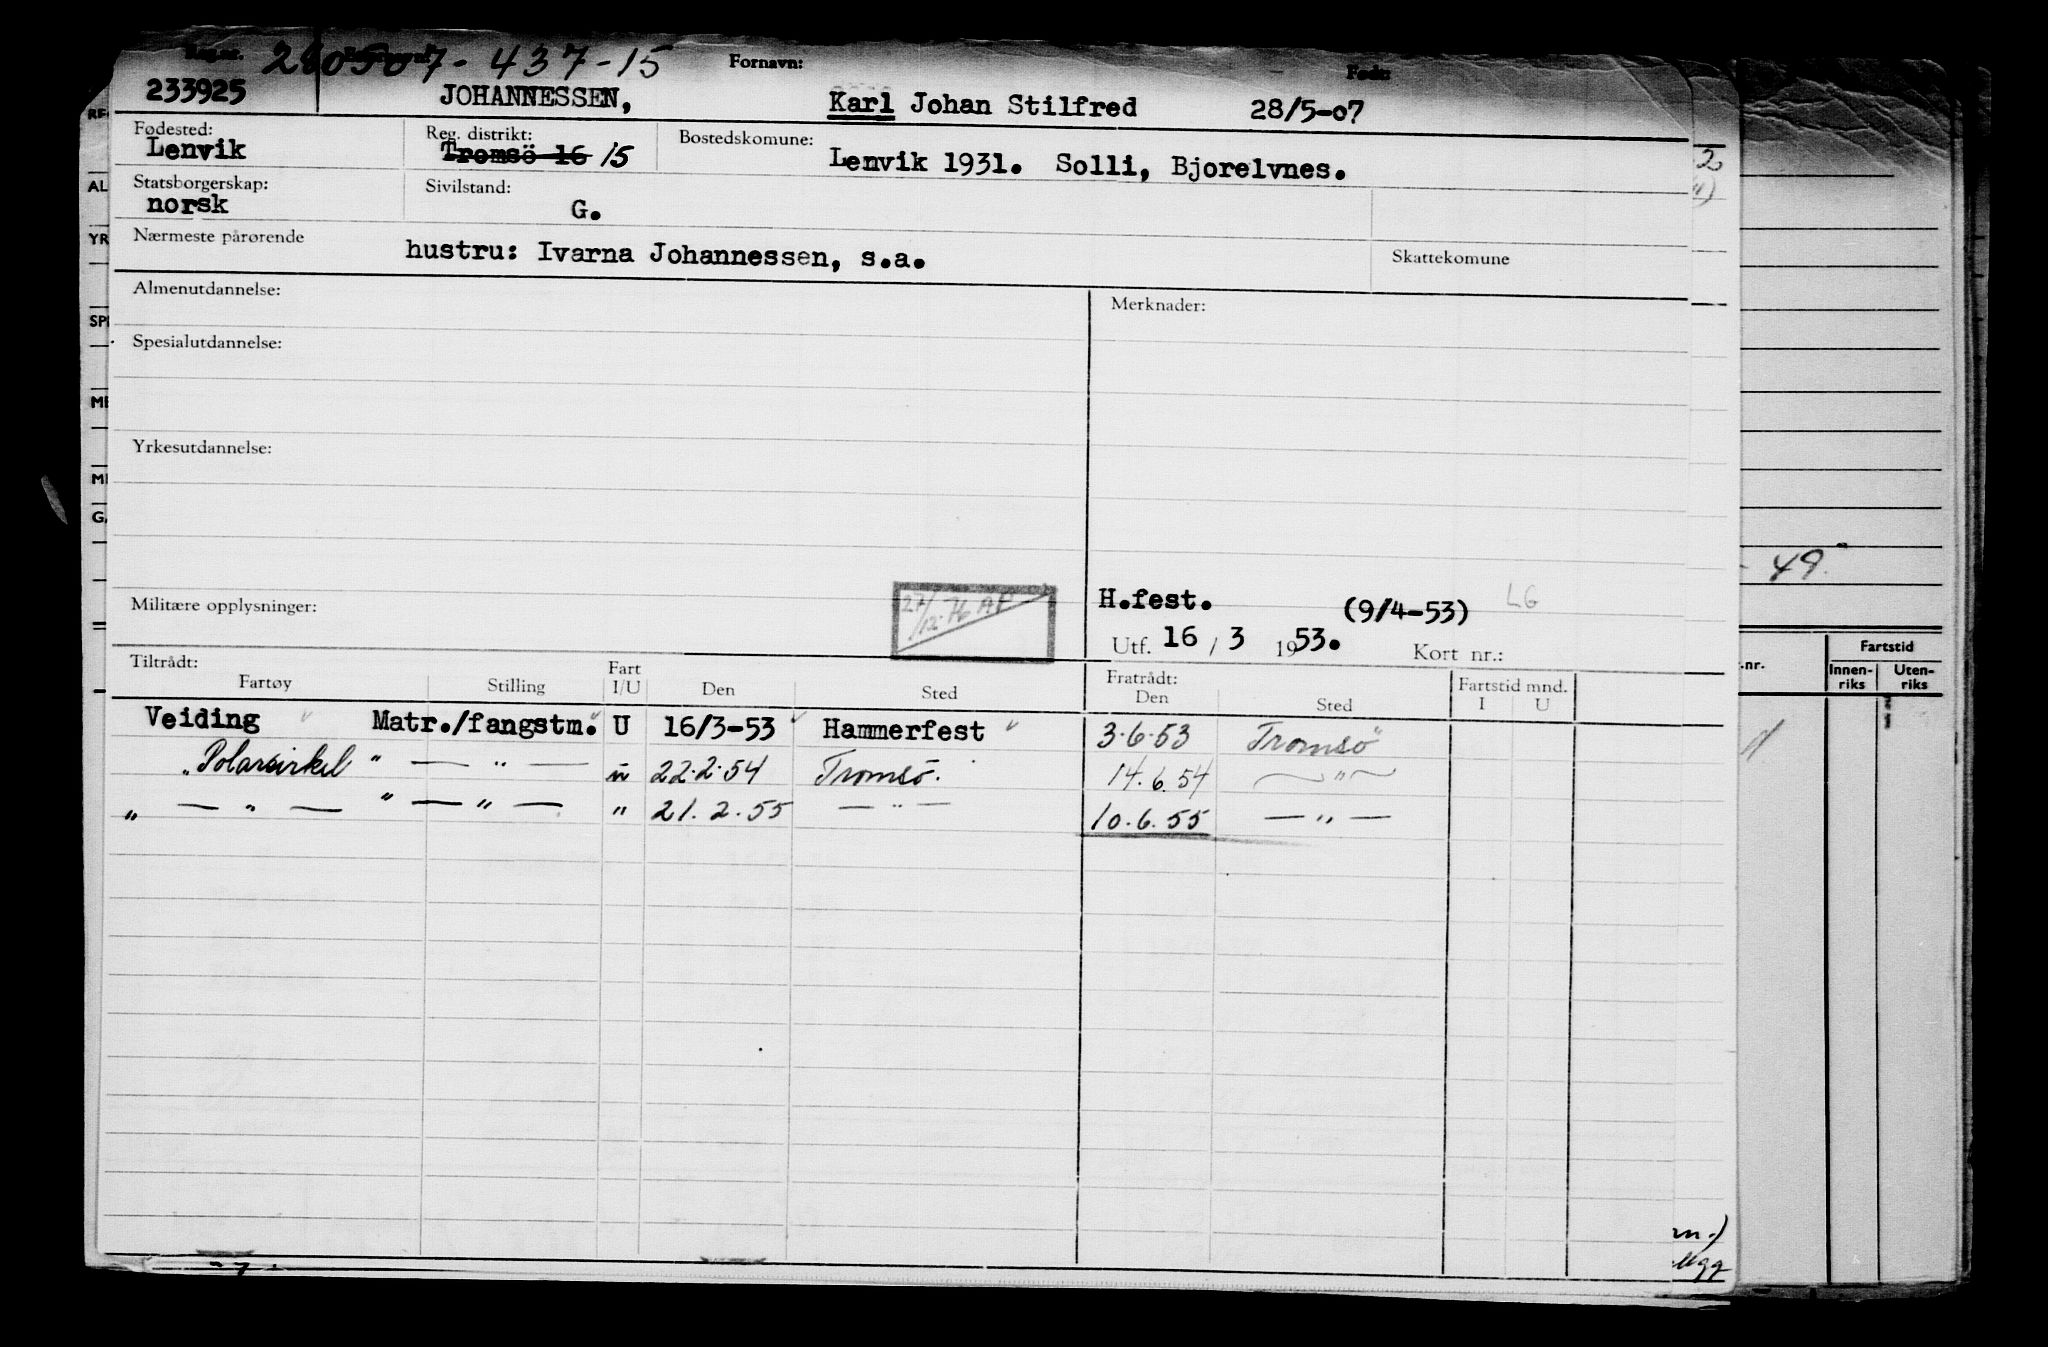 Reg.nr. 280507-437-15 Fornavn: Født:
233925 JOHANNESSEN, Karl Johan Stilfred 28/5-07
Fødested: Reg. distrikt: Bostedskomune:
Lenvik Tromsö 16 15 Lenvik 1931. Solli, Bjorelvnes.
Statsborgerskap: Sivilstand:
norsk G.
Nærmeste pårørende hustru: Ivarna Johannessen, s.a. Skattekomune
Almenutdannelse: Merknader:
Spesialutdannelse:
Yrkesutdannelse:
27/12-76 AF
H.fest. (9/4-53) LG
Militære opplysninger: Utf. 16 / 3 1953. Kort nr.:
Tiltrådt: Fratrådt:
Fartøy Stilling Fart I/U Den Sted Den Sted Fartstid mnd. I U
Veiding Matr./fangstm. U 16/3-53 Hammerfest 3.6.53 Tromsö
"Polarsirkel " — " — " 22.2.54 Tromsö. 14.6.54 — " —
" — " — " — " — " 21.2.55 — " — 10.6.55 — " —
2
- 49.
Fartstid
.nr. Innen-riks Uten-riks
RE
AL
YR
SPE
ME
MI
GA